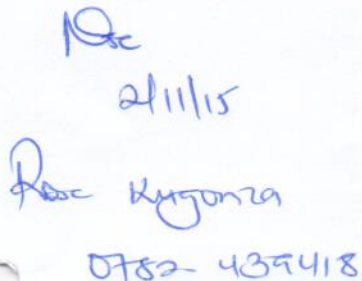 2/11/15
Rose Kugonza
0782 439418